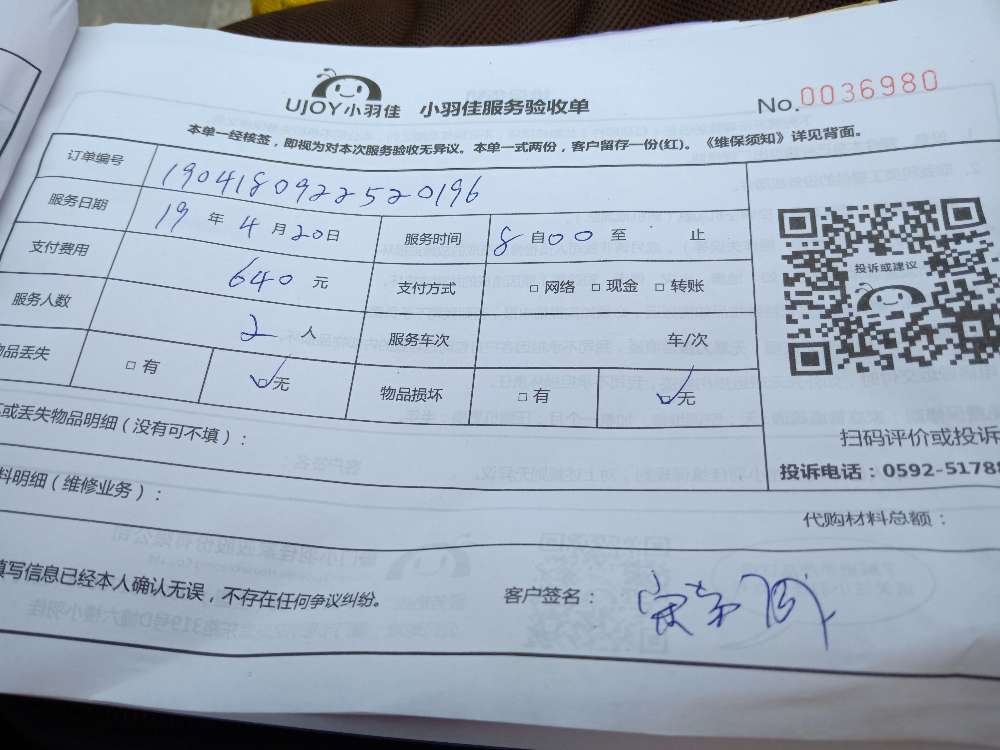 UJOY小羽佳 小羽佳服务验收单 No.0036980
本单一经核签，即视为对本次服务验收无异议。本单一式两份，客户留存一份(红)。《维保须知》详见背面。
订单编号 190418092252 0196
服务日期 19 年 4 月 20 日 服务时间 8 自 00 至 止
支付费用 640 元 支付方式 □ 网络 □ 现金 □ 转账
服务人数 2 人 服务车次 车/次
物品丢失 □ 有 ☑无 物品损坏 □ 有 ☑无
投诉或建议
扫码评价或投诉
投诉电话：0592-5178
坏或丢失物品明细（没有可不填）：
料明细（维修业务）：
代购材料总额：
填写信息已经本人确认无误，不存在任何争议纠纷。 客户签名：